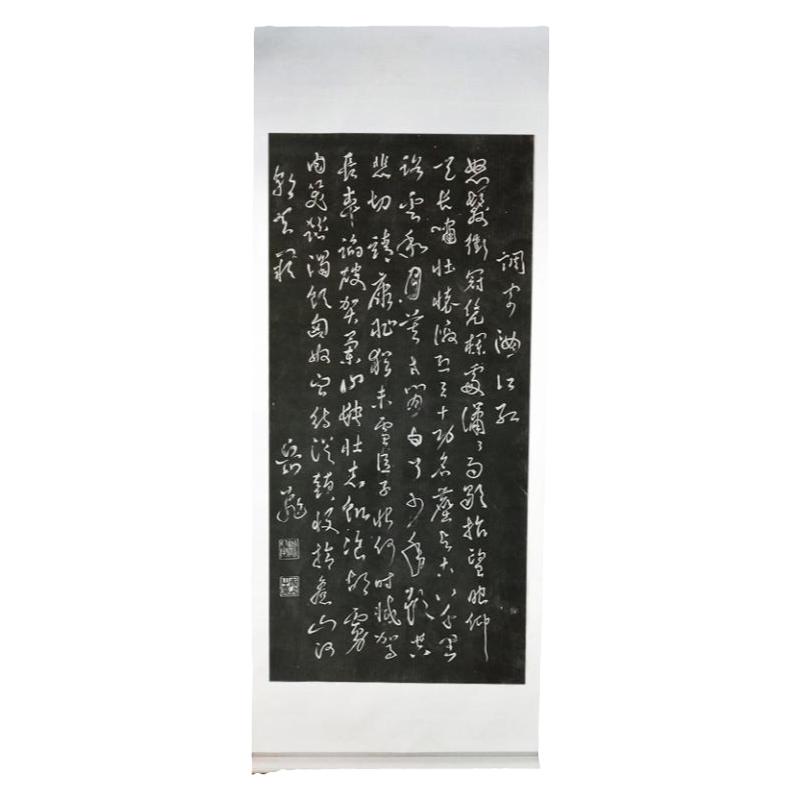 調寄滿江紅
怒髮衝冠凭欄處瀟瀟雨歇抬望眼仰
天長嘯壯懷激烈三十功名塵與土八千里
路雲和月莫等閒白了少年頭空
悲切靖康恥猶未雪臣子恨何時滅駕
長車踏破賀蘭山缺壯志飢飡胡虜
肉笑談渴飲匈奴血待從頭收拾舊山河
朝天闕
岳飛